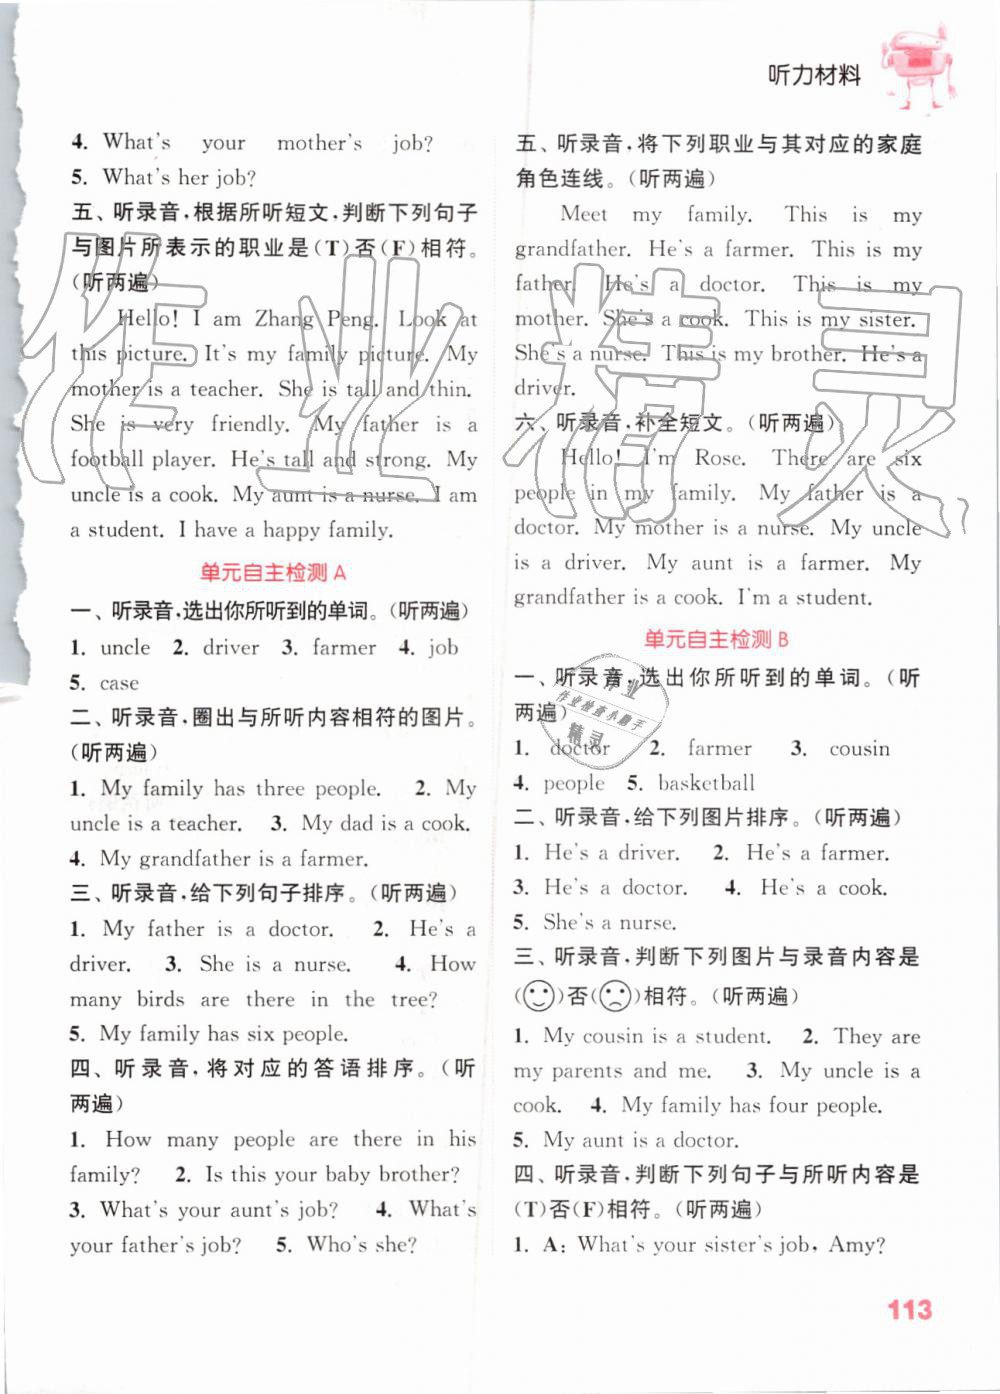 听力材料
4. What's your mother's job?
5. What's her job?
五、听录音,根据所听短文,判断下列句子
与图片所表示的职业是(T)否(F)相符。
(听两遍)
Hello! I am Zhang Peng. Look at
this picture. It's my family picture. My
mother is a teacher. She is tall and thin.
She is very friendly. My father is a
football player. He's tall and strong. My
uncle is a cook. My aunt is a nurse. I am
a student. I have a happy family.
单元自主检测 A
一、听录音,选出你所听到的单词。(听两遍)
1. uncle 2. driver 3. farmer 4. job
5. case
二、听录音,圈出与所听内容相符的图片。
(听两遍)
1. My family has three people. 2. My
uncle is a teacher. 3. My dad is a cook.
4. My grandfather is a farmer.
三、听录音,给下列句子排序。(听两遍)
1. My father is a doctor. 2. He's a
driver. 3. She is a nurse. 4. How
many birds are there in the tree?
5. My family has six people.
四、听录音,将对应的答语排序。(听
两遍)
1. How many people are there in his
family? 2. Is this your baby brother?
3. What's your aunt's job? 4. What's
your father's job? 5. Who's she?
五、听录音,将下列职业与其对应的家庭
角色连线。(听两遍)
Meet my family. This is my
grandfather. He's a farmer. This is my
father. He's a doctor. This is my
mother. She's a cook. This is my sister.
She's a nurse. This is my brother. He's a
driver.
六、听录音,补全短文。(听两遍)
Hello! I'm Rose. There are six
people in my family. My father is a
doctor. My mother is a nurse. My uncle
is a driver. My aunt is a farmer. My
grandfather is a cook. I'm a student.
单元自主检测 B
一、听录音,选出你所听到的单词。(听
两遍)
1. doctor 2. farmer 3. cousin
4. people 5. basketball
二、听录音,给下列图片排序。(听两遍)
1. He's a driver. 2. He's a farmer.
3. He's a doctor. 4. He's a cook.
5. She's a nurse.
三、听录音,判断下列图片与录音内容是
( )否( )相符。(听两遍)
1. My cousin is a student. 2. They are
my parents and me. 3. My uncle is a
cook. 4. My family has four people.
5. My aunt is a doctor.
四、听录音,判断下列句子与所听内容是
(T)否(F)相符。(听两遍)
1. A: What's your sister's job, Amy?
113
作业精灵
作业
作业检查小助手
精灵